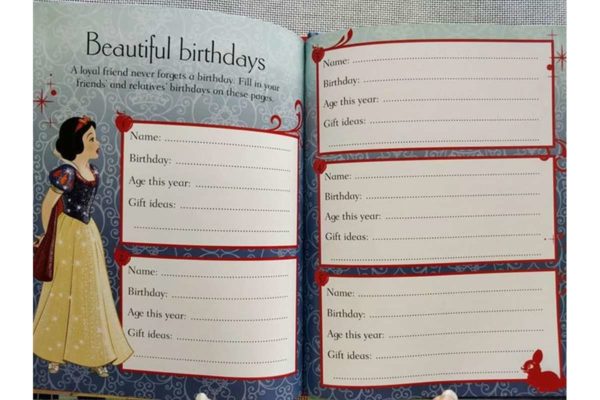 Beautiful birthdays
A loyal friend never forgets a birthday. Fill in your
friends' and relatives' birthdays on these pages.
Name:
Birthday:
Age this year:
Gift ideas:
Name:
Birthday:
Age this year:
Gift ideas:
Name:
Birthday:
Age this year:
Gift ideas:
Name:
Birthday:
Age this year:
Gift ideas:
Name:
Birthday:
Age this year:
Gift ideas: